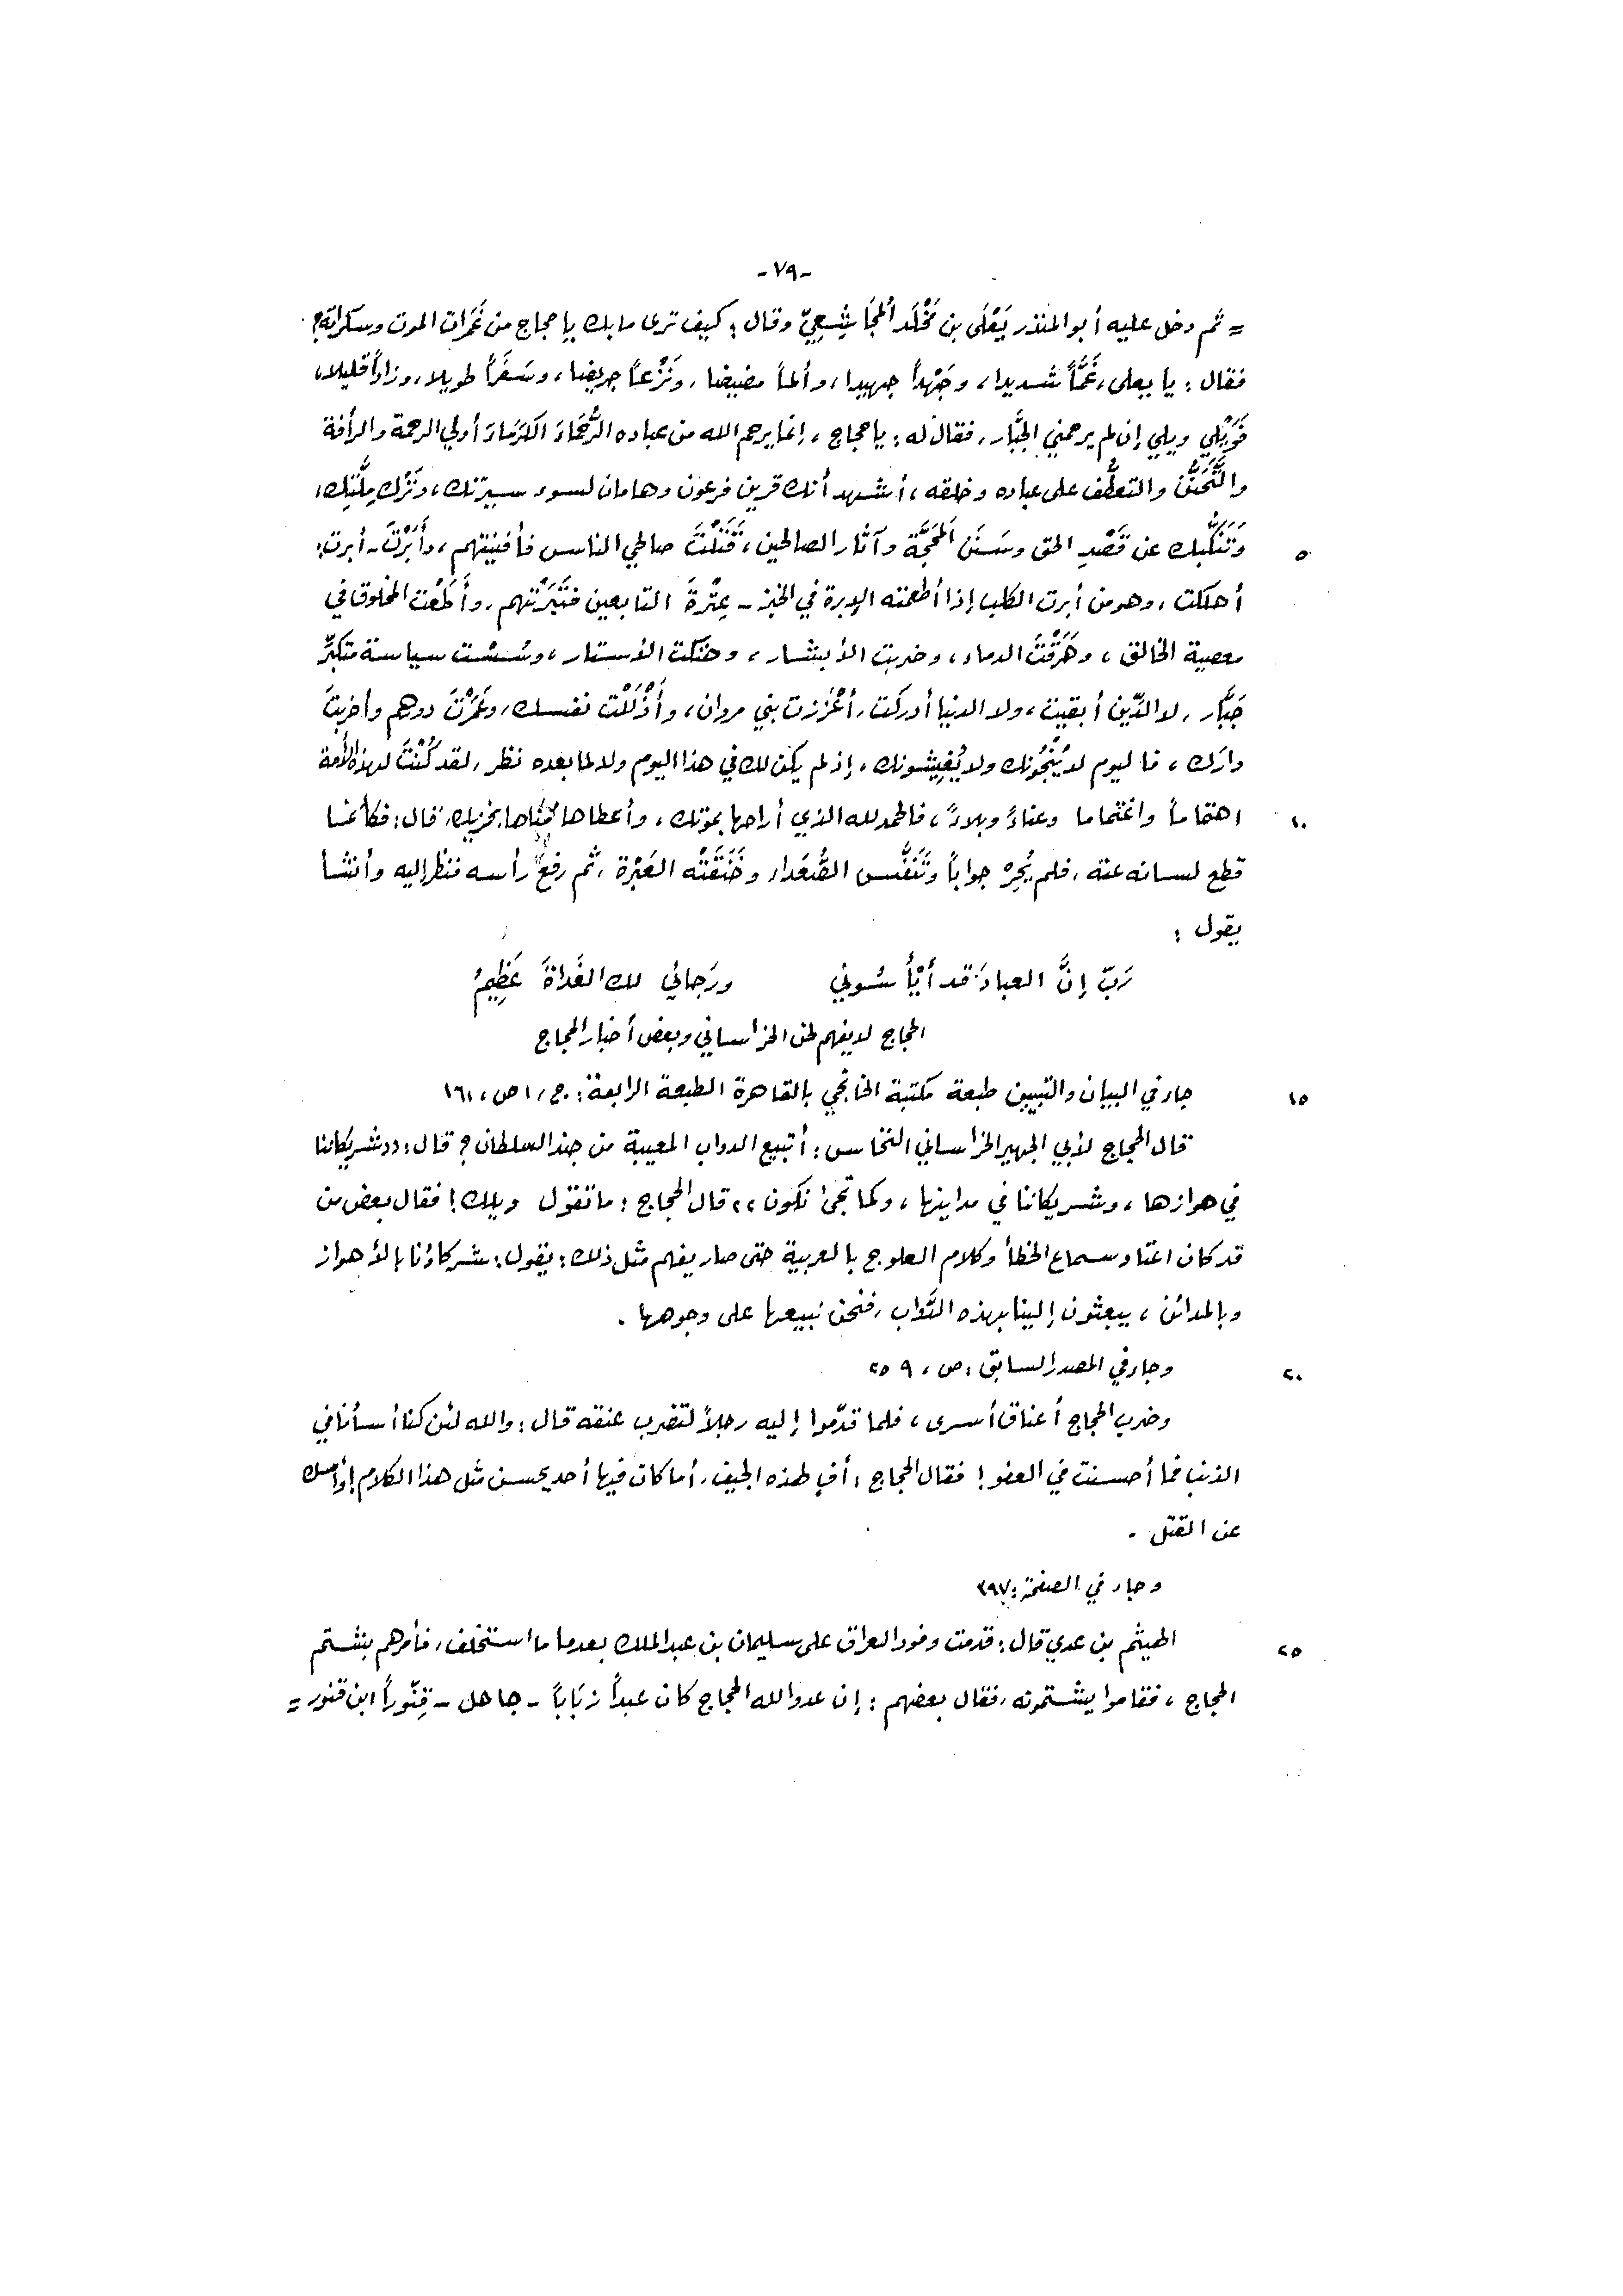 -٧٩-
= ثم دخل عليه أبو المنذر يَعْلَى بن مَخْلَد المُجَاشِعِيّ وقال : كيف ترى ما بك يا حجاج من غَمَرات الموت وسكراته؟
فقال : يا يعلى، غَمًّا شديدا، وجَهْداً جهيدا، وألماً مضيضا، ونَزْعاً جريضا، وسَفَراً طويلا، وزاداً قليلا،
فَوَيْلي ويلي إن لم يرحمني الجَبَّار، فقال له : يا حجاج، إنما يرحم الله من عباده الرُّحَمَاءَ الكُرَمَاءَ أولي الرحمة والرأفة
والتَّحَنُّن والتعطُّف على عباده وخلقه، أشهد أنك قرين فرعون وهامان لسوء سيرتك، وتَرْك مِلَّتِك،
٥ وَتَنَكُّبك عن قَصْدِ الحق وسَنَن المَحَجَّة وآثار الصالحين، قَتَلْتَ صالحي الناس فأفنيتهم، وأَبَرْتَ - أبرت:
أهلكت، وهو من أبرت الكلب إذا أطعمته الإبرة في الخبز - عِتْرةَ التابعين فتَبَّرْتهم، وأَطَعْت المخلوق في
معصية الخالق، وهَرَقْتَ الدماء، وضربت الأبشار، وهتكت الأستار، وسُسْت سياسة متكبِّر
جَبَّار، لا الدّين أبقيت، ولا الدنيا أدركت، أعْزَزت بني مروان، وأَذْلَلْت نفسك، وعَمَرْتَ دورهم وأخربتَ
دارَك، فاليوم لا يُنْجُونك ولا يُغِيثونك، إذ لم يكن لك في هذا اليوم ولا لما بعده نظر، لقد كُنْتَ لهذه الأمة
١٠ اهتماماً واغتماما وعناءً وبلاءً، فالحمد لله الذي أراحها بموتك، وأعطاها مُنَاها بخزيك، قال: فكأنما
قطع لسانه عنه، فلم يُحِرْ جواباً وتَنَفَّس الصُّعَداء وخَنَقَتْه العَبْرة، ثم رفع رأسه فنظر إليه وأنشأ
يقول :
رَبّ إنَّ العبادَ قد أَيْأَسُوني ورَجائي لك الغَداةَ عَظِيمُ
الحجاج لا يفهم لحن الخراساني وبعض أخبار الحجاج
١٥ جاء في البيان والتبيين طبعة مكتبة الخانجي بالقاهرة الطبعة الرابعة: ج، ١ ص، ١٦١
قال الحجاج لأبي الجهير الخراساني النخاس : أتبيع الدواب المعيبة من جند السلطان؟ قال: ((شريكاتنا
في هوازها، وشريكاتنا في مداينها، وكما تجئ نكون)) قال الحجاج : ما تقول ويلك! فقال بعض من
قد كان اعتاد سماع الخطأ وكلام العلوج بالعربية حتى صار يفهم مثل ذلك: يقول: شركاؤنا بالأهواز
وبالمدائن، يبعثون إلينا بهذه الدَّواب، فنحن نبيعها على وجوهها .
٢٠ وجاء في المصدر السابق، ص، ٢٥٩
وضرب الحجاج أعناق أسرى، فلما قدّموا إليه رجلاً لتضرب عنقه قال : والله لئن كنا أسأنا في
الذنب فما أحسنت في العفو! فقال الحجاج : أفٍ لهذه الجيف، أما كان فيها أحد يحسن مثل هذا الكلام! وأمسك
عن القتل .
وجاء في الصفحة : ٣٩٧
٢٥ الهيثم بن عدي قال: قدمت وفود العراق على سليمان بن عبد الملك بعدما استخلف، فأمرهم بشتم
الحجاج، فقاموا يشتمونه، فقال بعضهم : إن عدو الله الحجاج كان عبداً زبَاباً - جاهل - قِنَّوراً ابن قنور =